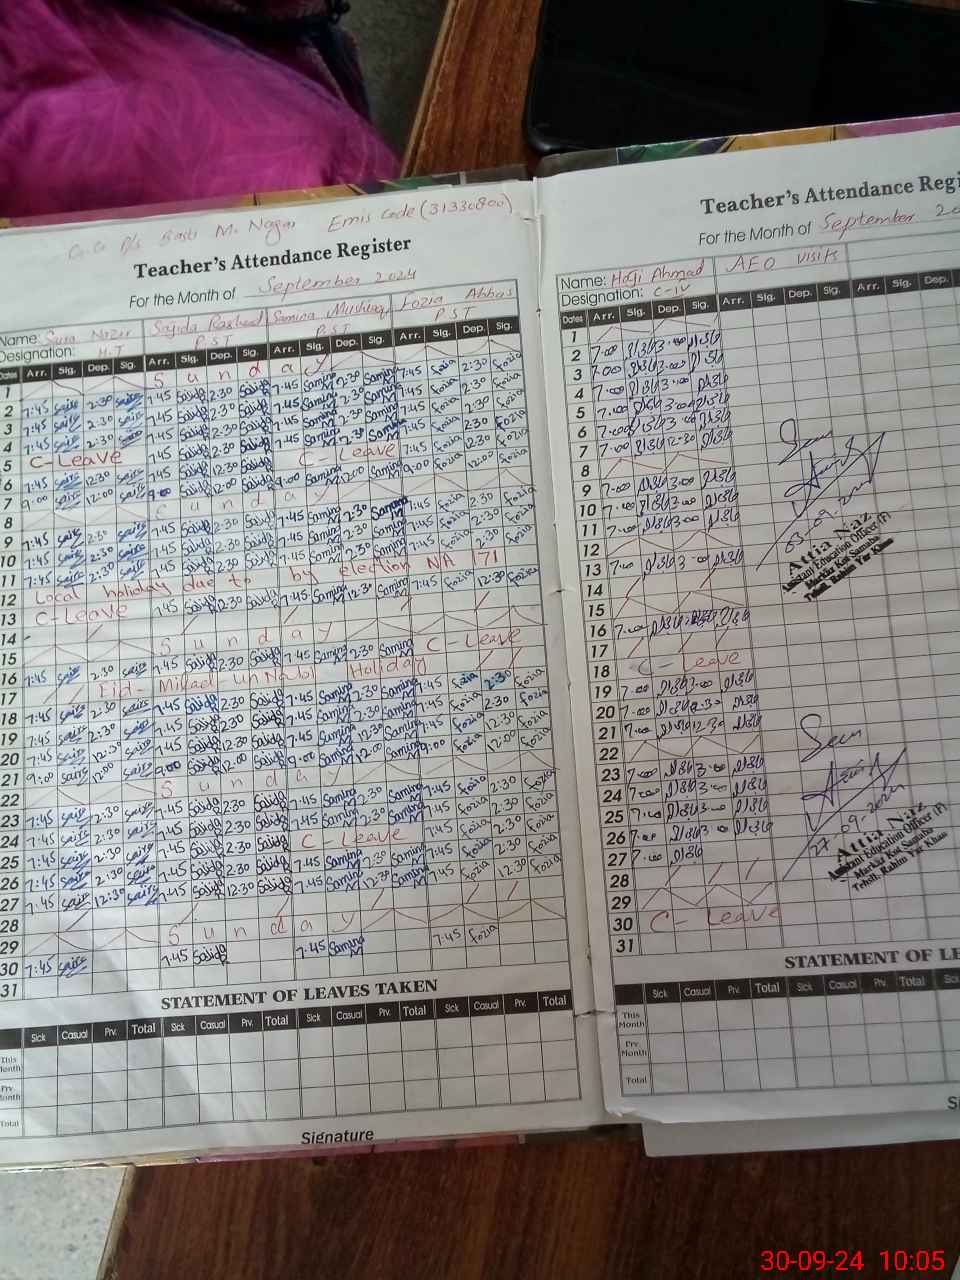 G. G P/s Basti M. Nagar Emis Code (31330800)
Teacher's Attendance Register
For the Month of September 2024
Name: Saira Nazir Sajida Rasheed Samina Mushtaq Fozia Abbas
Designation: H.T P.ST P.ST P.ST
Dates Arr. Sig. Dep. Sig. Arr. Sig. Dep. Sig. Arr. Sig. Dep. Sig. Arr. Sig. Dep. Sig.
1 Sunday
2 7:45 2:30 7:45 Sajida 2:30 Sajida 7:45 Samina 2:30 Samina 7:45 Fozia 2:30 Fozia
3 7:45 2:30 7:45 Sajida 2:30 Sajida 7:45 Samina 2:30 Samina 7:45 Fozia 2:30 Fozia
4 7:45 2:30 7:45 Sajida 2:30 Sajida 7:45 Samina 2:30 Samina 7:45 Fozia 2:30 Fozia
5 C-Leave 7:45 Sajida 2:30 Sajida 7:45 Samina 2:30 Samina 7:45 Fozia 2:30 Fozia
6 7:45 12:30 7:45 Sajida 12:30 Sajida C-Leave 7:45 Fozia 12:30 Fozia
7 9:00 12:00 9:00 Sajida 12:00 Sajida 9:00 Samina 12:00 Samina 9:00 Fozia 12:00 Fozia
8 Sunday
9 7:45 2:30 7:45 Sajida 2:30 Sajida 7:45 Samina 2:30 Samina 7:45 Fozia 2:30 Fozia
10 7:45 2:30 7:45 Sajida 2:30 Sajida 7:45 Samina 2:30 Samina 7:45 Fozia 2:30 Fozia
11 7:45 2:30 7:45 Sajida 2:30 Sajida 7:45 Samina 2:30 Samina 7:45 Fozia 2:30 Fozia
12 Local holiday due to by election NA 171
13 C-Leave 7:45 Sajida 12:30 Sajida 7:45 Samina 12:30 Samina 7:45 Fozia 12:30 Fozia
14
15 Sunday
16 7:45 2:30 7:45 Sajida 2:30 Sajida 7:45 Samina 2:30 Samina C-Leave
17 Eid-Milad un Nabi Holiday
18 7:45 2:30 7:45 Sajida 2:30 Sajida 7:45 Samina 2:30 Samina 7:45 Fozia 2:30 Fozia
19 7:45 2:30 7:45 Sajida 2:30 Sajida 7:45 Samina 2:30 Samina 7:45 Fozia 2:30 Fozia
20 7:45 12:30 7:45 Sajida 12:30 Sajida 7:45 Samina 12:30 Samina 7:45 Fozia 12:30 Fozia
21 9:00 12:00 9:00 Sajida 12:00 Sajida 9:00 Samina 12:00 Samina 9:00 Fozia 12:00 Fozia
22 Sunday
23 7:45 2:30 7:45 Sajida 2:30 Sajida 7:45 Samina 2:30 Samina 7:45 Fozia 2:30 Fozia
24 7:45 2:30 7:45 Sajida 2:30 Sajida 7:45 Samina 2:30 Samina 7:45 Fozia 2:30 Fozia
25 7:45 2:30 7:45 Sajida 2:30 Sajida C-Leave 7:45 Fozia 2:30 Fozia
26 7:45 2:30 7:45 Sajida 2:30 Sajida 7:45 Samina 2:30 Samina 7:45 Fozia 2:30 Fozia
27 7:45 12:30 7:45 Sajida 12:30 Sajida 7:45 Samina 12:30 Samina 7:45 Fozia 12:30 Fozia
28
29 Sunday
30 7:45 7:45 Sajida 7:45 Samina 7:45 Fozia
31
STATEMENT OF LEAVES TAKEN
Sick Casual Prv. Total Sick Casual Prv. Total Sick Casual Prv. Total Sick Casual Prv. Total
This Month
Prv Month
Total
Signature
Teacher's Attendance Regi
For the Month of September 20
Name: Haji Ahmad AEO visits
Designation: C-IV
Dates Arr. Sig. Dep. Sig. Arr. Sig. Dep. Sig. Arr. Sig. Dep.
1
2 7:00 3:00
3 7:00 3:00
4 7:00 3:00
5 7:00 3:00
6 7:00
7 7:00 12:30
8
9 7:00 3:00
10 7:00 3:00
11 7:00 3:00
12
13 7:00 3:00
14
15
16 7:00
17
18 C-Leave
19 7:00 3:00
20 7:00
21 7:00 12:30
22
23 7:00 3:00
24 7:00 3:00
25 7:00 3:00
26 7:00 3:00
27 7:00
28
29
30 C-Leave
31
Seen
03-09-2024
Attia Niaz
Assistant Education Officer (F)
Markaz Kot Samaba
Tehsil: Rahim Yar Khan
Seen
27-09-2024
Attia Niaz
Assistant Education Officer (F)
Markaz Kot Samaba
Tehsil: Rahim Yar Khan
STATEMENT OF LE
Sick Casual Prv. Total Sick Casual Prv. Total Sick
This Month
Prv Month
Total
30-09-24 10:05